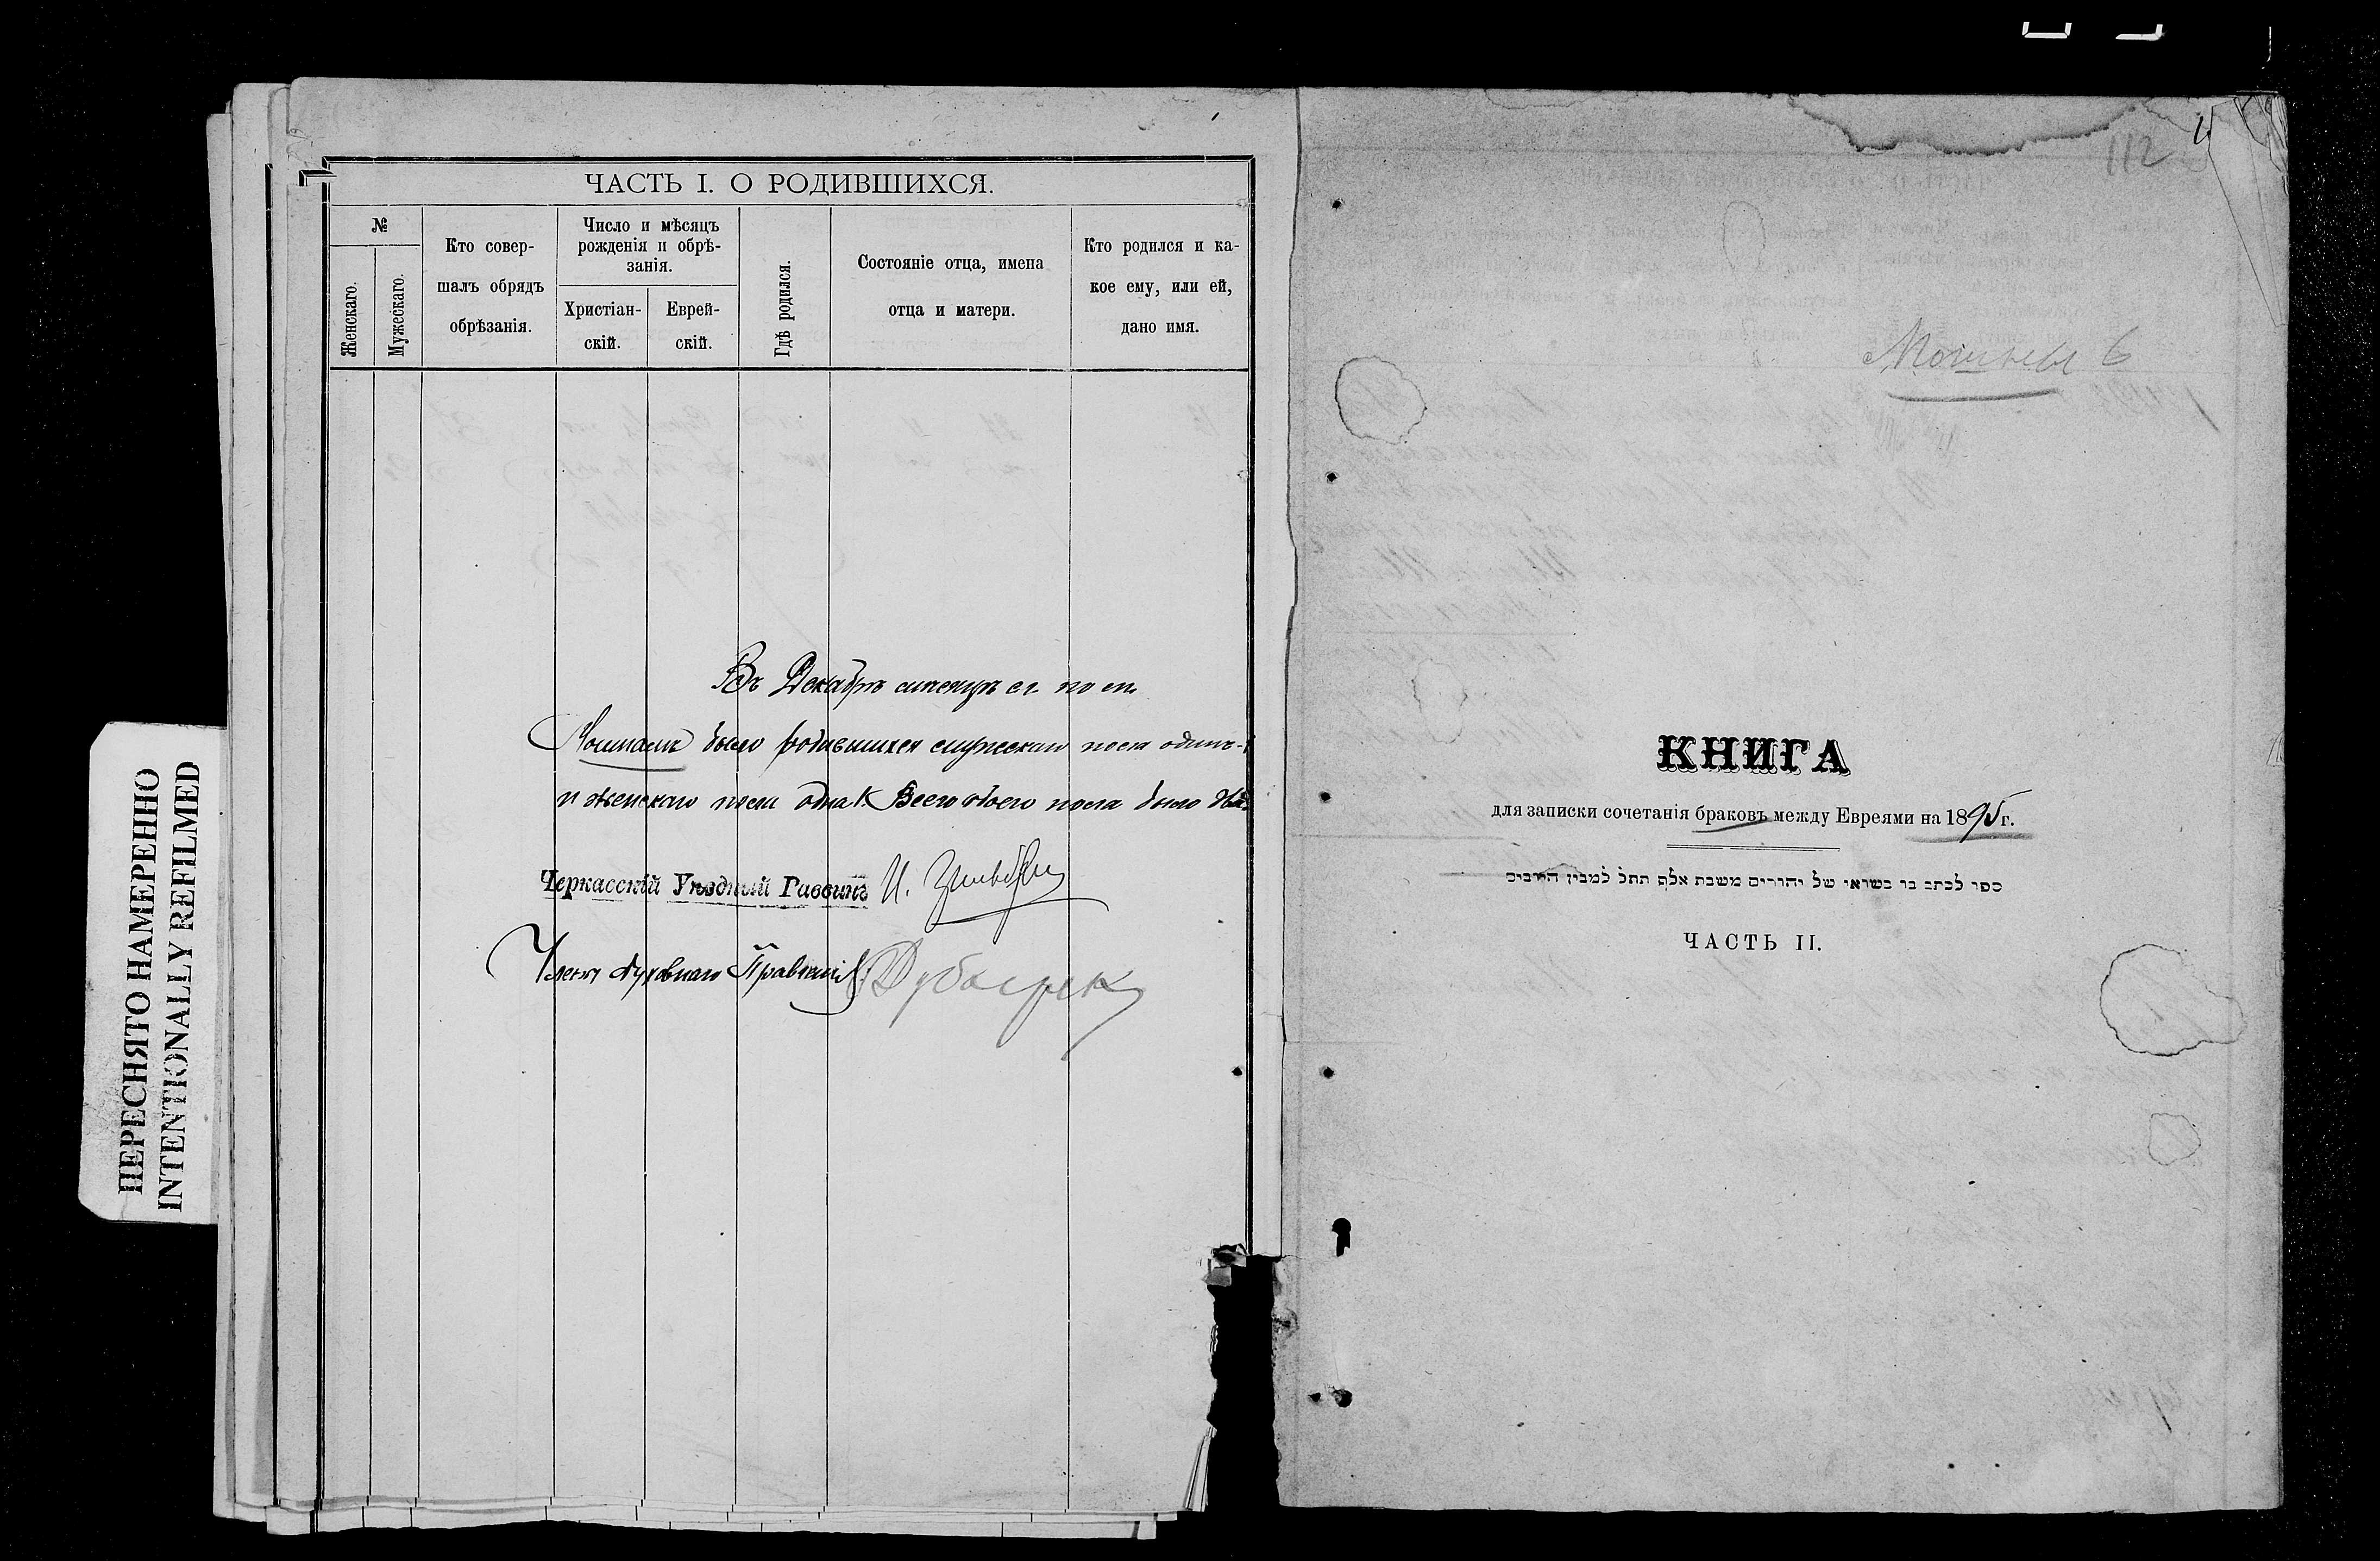 ПЕРЕСНЯТО НАМЕРЕННО
INTENTIONALLY REFILMED
ЧАСТЬ I. О РОДИВШИХСЯ.
№
Женскаго.
Мужескаго.
Кто совер-
шалъ обрядъ
обрѣзанія.
Число и мѣсяцъ
рожденія и обрѣ-
занія.
Христіан-
скій.
Еврей-
скій.
Гдѣ родился.
Состояніе отца, имена
отца и матери.
Кто родился и ка-
кое ему, или ей,
дано имя.
Въ Декабрѣ мѣсяцѣ с. г. по м.
Мошнамъ было родившихся мужескаго пола одинъ-1
и женскаго пола одна 1. Всего обоего пола было два
Черкасскій Уѣздный Раввинъ И.
Членъ духовнаго Правленія
112
Мошны 6
КНИГА
для записки сочетанія браковъ между Евреями на 1895 г.
ספר לכתב בו נשואי של יהודים משנת אלף תתל למנין הרבים
ЧАСТЬ II.